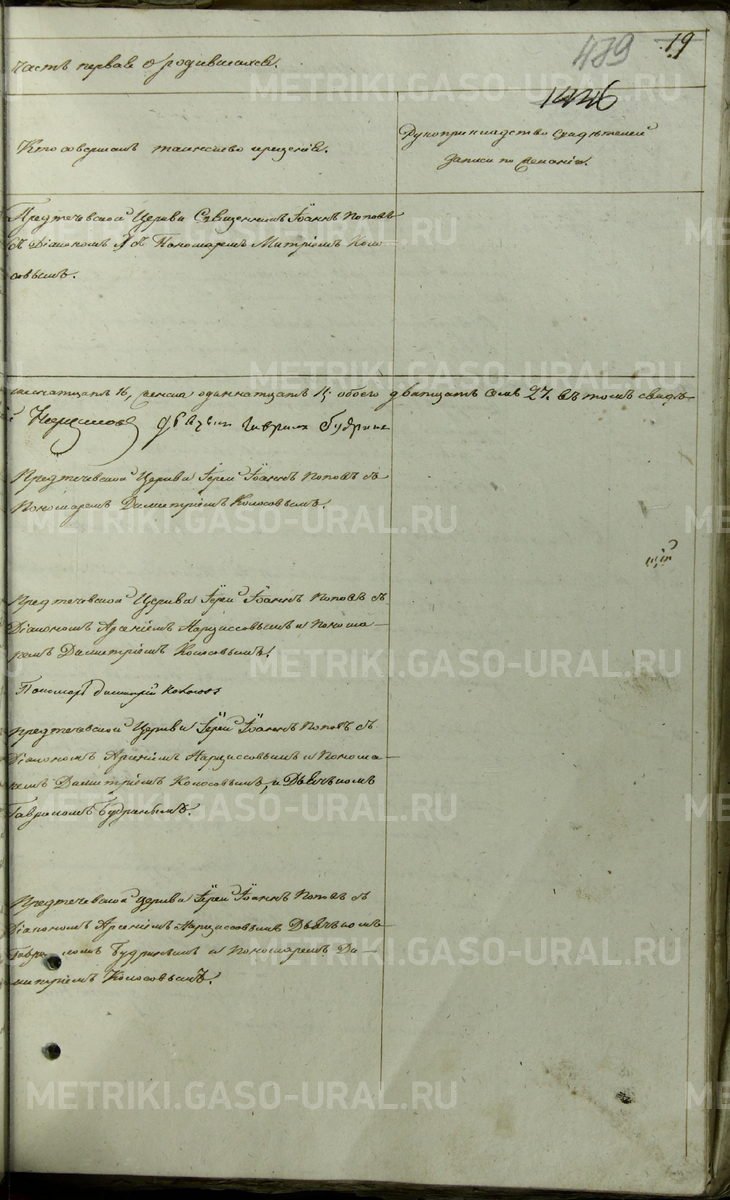 489 19
Часть первая о родившихся.
1446
Кто совершалъ таинство крещенія.
Рукоприкладство свидѣтелей
записи по желанію.
Предтечевской Церкви Священникъ Іоаннъ Поповъ
съ Діакономъ и съ Пономаремъ Митріемъ Коло-
совымъ.
16, женска одиннатцать 11, обоего дватцать семь 27. въ томъ свидѣ-
Дьячекъ Гаврилъ Будринъ
Предтечевской Церкви Іерей Іоаннъ Поповъ съ
Пономаремъ Димитріемъ Колосовымъ.
Предтечевской Церкви Іерей Іоаннъ Поповъ съ
Діакономъ Арсеніемъ Нарциссовымъ и Понома-
ремъ Димитріемъ Колосовымъ.
Пономарь Димитрій Колосовъ
Предтечевской Церкви Іерей Іоаннъ Поповъ съ
Діакономъ Арсеніемъ Нарциссовымъ и Понома-
ремъ Димитріемъ Колосовымъ, и Дьячькомъ
Гавриломъ Будринымъ.
Предтечевской Церкви Іерей Іоаннъ Поповъ съ
Діакономъ Арсеніемъ Нарциссовымъ Дьячькомъ
Гавриломъ Будринымъ и Пономаремъ Ди-
митріемъ Колосовымъ.
METRIKI.GASO-URAL.RU